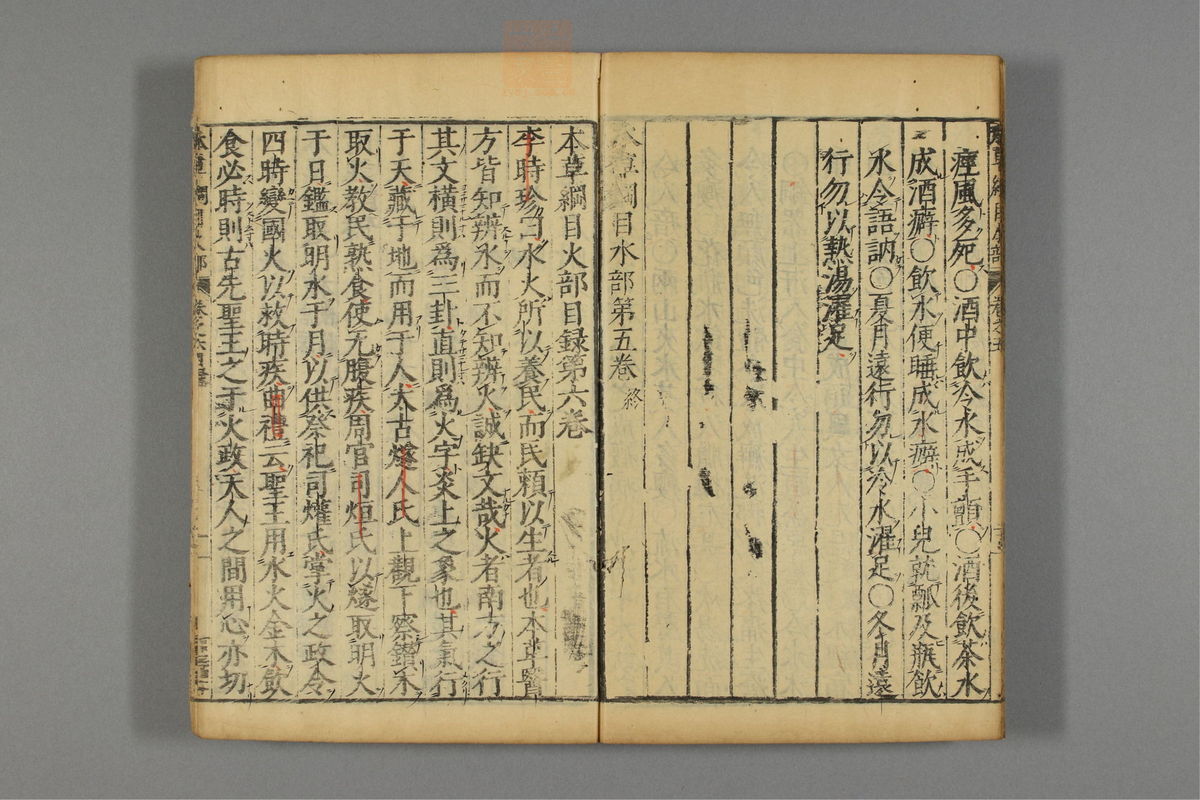 痙風多死○酒中飲冷水成手顫○酒後飲茶水
成酒癖○飲水便睡成水癖○小兒就瓢及瓶飲
水令語訥○夏月遠行勿以冷水濯足○冬月遠
行勿以熱湯濯足
本草綱目水部第五卷 終
本草綱目火部目録第六卷
李時珍曰水火所以養民而民賴以生者也本草醫
方皆知辨水而不知辨火誠缺文哉火者南方之行
其文横則爲三卦直則爲火字炎上之象也其氣行
于天藏于地而用于人太古燧人氏上觀下察鑽木
取火教民熟食使无腹疾周官司烜氏以燧取明火
于日鑑取明水于月以供祭祀司爟氏掌火之政令
四時變國火以救時疾曲禮云聖王用水火金木飲
食必時則古先聖王之于火政天人之間用心亦切